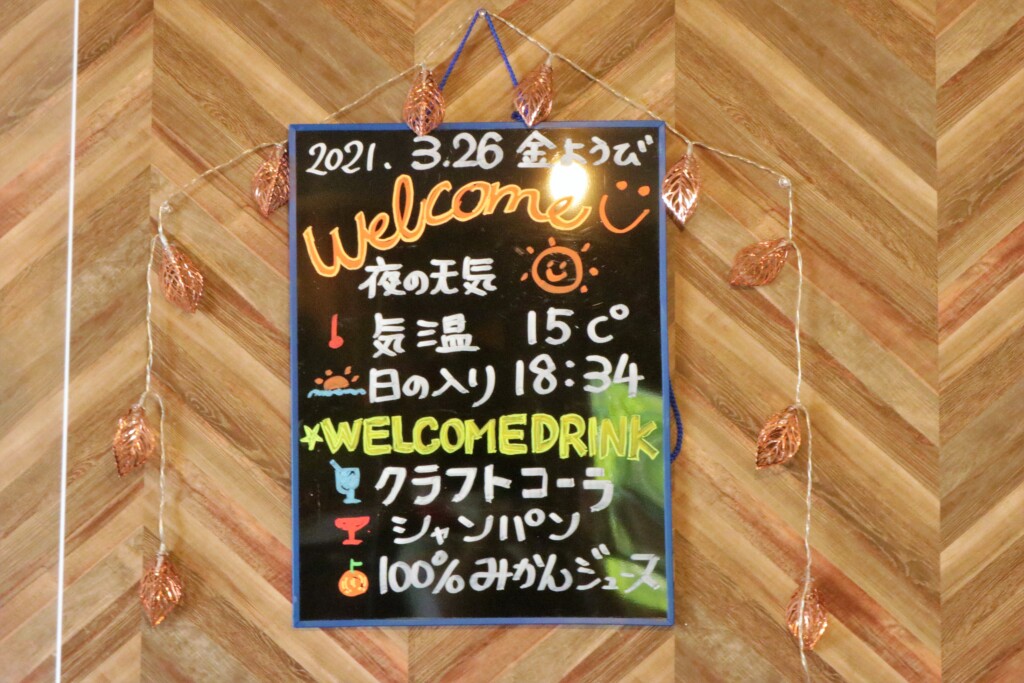 2021.3.26 金ようび
Welcome
夜の天気
気温 15C°
日の入り 18:34
WELCOMEDRINK
クラフトコーラ
シャンパン
100%みかんジュース